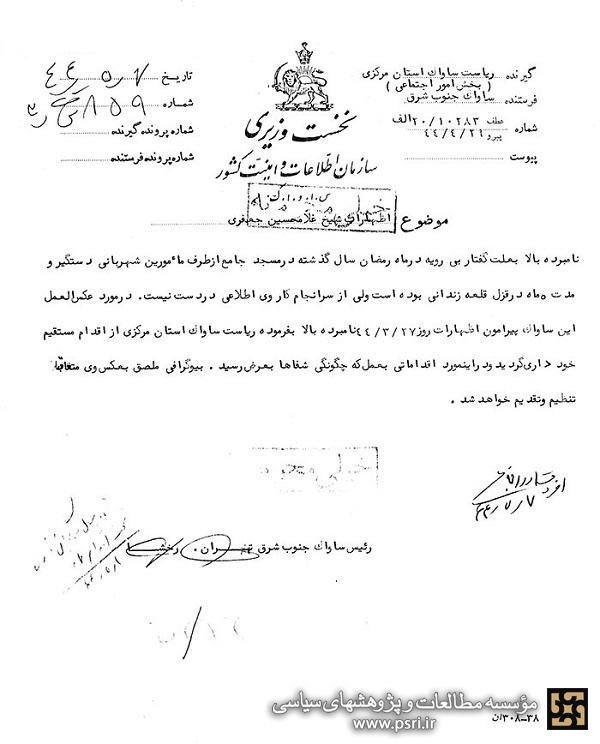 گیرنده ریاست ساواك استان مرکزی
( بخش امور اجتماعی )
فرستنده ساواك جنوب شرق
شماره عطف ۲۰/۱۰۲۸۳ الف
پیرو ۴۴/۴/۲۱
پیوست
نخست وزیری
سازمان اطلاعات و امنیت کشور
تاریخ ۴۴/۵/۷
شماره
شماره پرونده گیرنده
شماره پرونده فرستنده
موضوع اظهارات شیخ غلامحسین جعفری
نامبرده بالا بعلت گفتار بی رویه در ماه رمضان سال گذشته در مسجد جامع از طرف مأمورین شهربانی دستگیر و
مدت ۵ ماه در قزل قلعه زندانی بوده است ولی از سرانجام کار وی اطلاعی در دست نیست. در مورد عکس العمل
این ساواك پیرامون اظهارات روز ۴۴/۳/۲۷ نامبرده بالا بفرموده ریاست ساواك استان مرکزی از اقدام مستقیم
خود داری گردید و در اینمورد اقداماتی بعمل که چگونگی شفاها بعرض رسید . بیوگرافی ملصق بعکس وی متعاقباً
تنظیم و تقدیم خواهد شد .
خیلی محرمانه
رئیس ساواك جنوب شرق تهران .
مؤسسه مطالعات و پژوهشهای سیاسی
www.psri.ir
۳۸-۳۰۸/ن